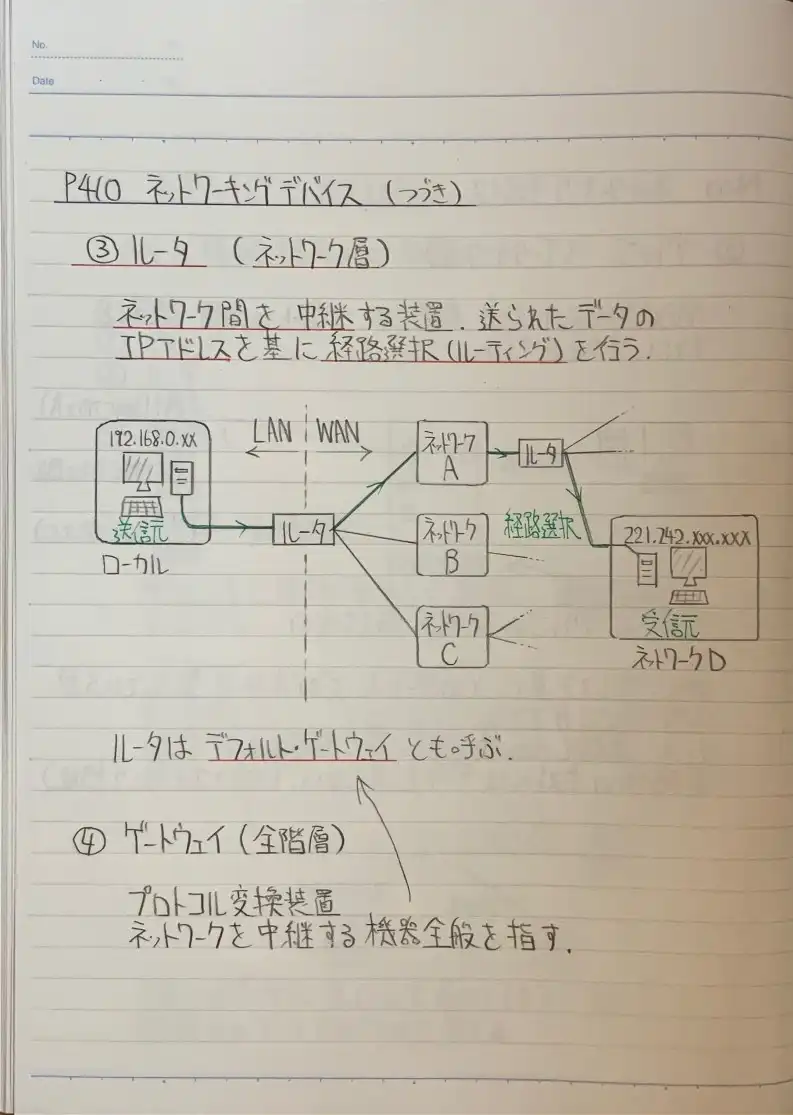 No.
Date
P410 ネットワーキングデバイス (つづき)
③ ルータ (ネットワーク層)
ネットワーク間を中継する装置. 送られたデータの
IPアドレスを基に経路選択(ルーティング)を行う.
192.168.0.XX
送信元
ローカル
LAN
WAN
ルータ
ネットワーク
A
ネットワーク
B
ネットワーク
C
ルータ
経路選択
221.242.XXX.XXX
受信元
ネットワークD
ルータは デフォルト・ゲートウェイ とも呼ぶ.
④ ゲートウェイ(全階層)
プロトコル変換装置
ネットワークを中継する機器全般を指す.